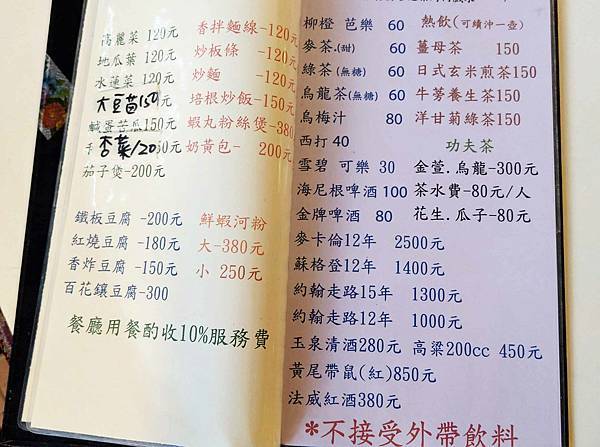 高麗菜 120元 香拌麵線-120元
地瓜葉 120元 炒板條 -120元
水蓮菜 120元 炒麵 -120元
大豆苗150元 培根炒飯-150元
鹹蛋苦瓜150元 蝦丸粉絲煲-380
杏菜/20 50元 奶黃包- 200元
茄子煲-200元
鐵板豆腐 -200元 鮮蝦河粉
紅燒豆腐 -180元 大-380元
香炸豆腐 -150元 小 250元
百花鑲豆腐-300
餐廳用餐酌收10%服務費
柳橙 芭樂 60 熱飲(可續沖一壺)
麥茶.(甜) 60 薑母茶 150
綠茶(無糖) 60 日式玄米煎茶150
烏龍茶(無糖) 60 牛蒡養生茶150
烏梅汁 80 洋甘菊綠茶150
西打 40 功夫茶
雪碧 可樂 30 金萱.烏龍-300元
海尼根啤酒 100 茶水費-80元/人
金牌啤酒 80 花生.瓜子-80元
麥卡倫12年 2500元
蘇格登12年 1400元
約翰走路15年 1300元
約翰走路12年 1000元
玉泉清酒280元 高粱200cc 450元
黃尾帶鼠(紅)850元
法威紅酒380元
*不接受外帶飲料